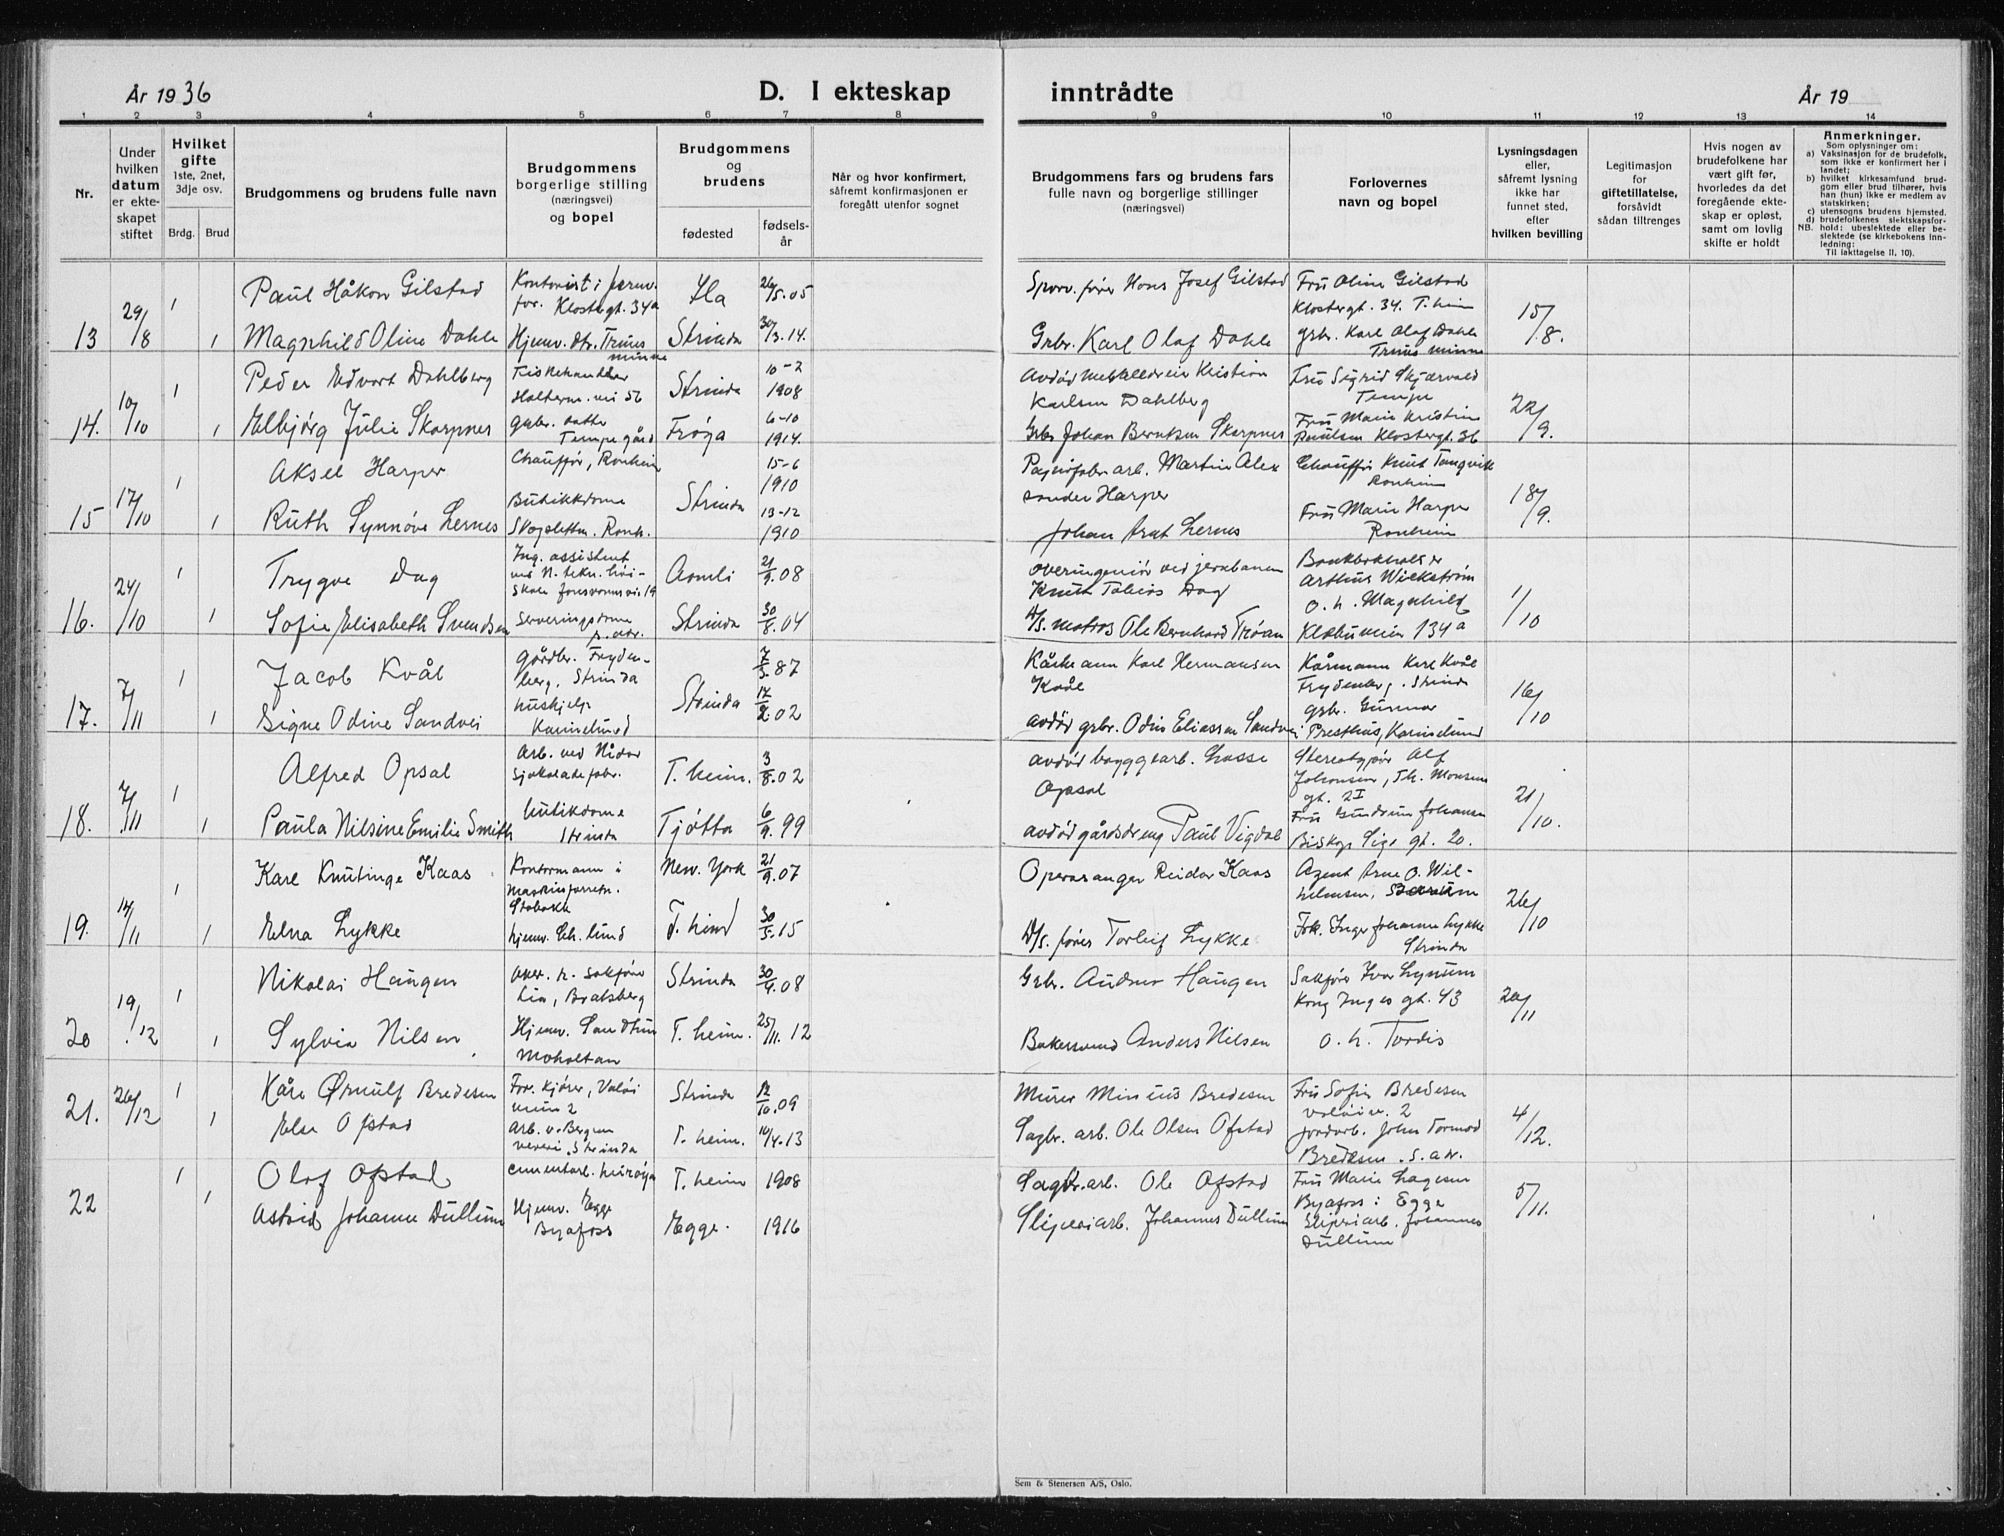 År 1936
D. I ekteskap
inntrådte
År 19
1 2 3 4 5 6 7 8 9 10 11 12 13 14
Nr.
Under
hvilken
datum
er ekte-
skapet
stiftet
Hvilket
gifte
1ste, 2net,
3dje osv.
Brdg. Brud
Brudgommens og brudens fulle navn
Brudgommens
borgerlige stilling
(næringsvei)
og bopel
Brudgommens
og
brudens
fødested
fødsels-
år
Når og hvor konfirmert,
såfremt konfirmasjonen er
foregått utenfor sognet
Brudgommens fars og brudens fars
fulle navn og borgerlige stillinger
(næringsvei)
Forlovernes
navn og bopel
Lysningsdagen
eller,
såfremt lysning
ikke har
funnet sted,
efter
hvilken bevilling
Legitimasjon
for
giftetillatelse,
forsåvidt
sådan tiltrenges
Hvis nogen av
brudefolkene har
vært gift før,
hvorledes da det
foregående ekte-
skap er opløst,
samt om lovlig
skifte er holdt
Anmerkninger.
Som oplysninger om:
a) Vaksinasjon for de brudefolk,
som ikke er konfirmert her i
landet;
b) hvilket kirkesamfund brud-
gom eller brud tilhører, hvis
han (hun) ikke er medlem av
statskirken;
c) utensogns brudens hjemsted.
d) brudefolkenes slektskapsfor-
NB. hold: ubeslektede eller be-
slektede (se kirkebokens inn-
ledning:
Til iakttagelse II, 10).
13 29/8 1 Paul Håkon Gilstad
Kontorist i
for. Klostergt. 34a
Ila 26/5.05
Hans Josef Gilstad
Fru Oline Gilstad
Klostergt. 34. T.heim
15/8.
1 Magnhild Oline Dahle
Hjemv. dtr.
minne
Strinda 30/3.14.
Grbr. Karl Olaf Dahle
grbr. Karl Olaf Dahle
minne
14. 10/10 1 Peder Edvart Dahlberg
Fiskehandler
Strinda 10-2 1908
Avdød Kristian
Karlsen Dahlberg
Fru Sigrid Skjærvold
Tempe
22/9.
1 Elbjørg Julie Skarpnes
grbr. datter
Tempe gård
Frøya 6-10 1914.
Grbr Johan Berntsen Skarpnes
Fru Marie Kristine
Paulsen Klostergt. 36
15 17/10 1 Aksel Harper
Chauffør, Ranheim
Strinda 15-6 1910
Martin Alex
sander Harper
Chauffør Knut Tangvik
Ranheim
18/9.
1 Ruth Synnøve Lernes
Butikkdame
13-12 1910
Johan Arnt Lernes
Fru Marie Harper
Ranheim
16. 24/10 1 Trygve Dag
Ing. assistent
ved N. tekn. høi-
skole
Aamli 21/9.08
overingeniør ved jernbanen
Knut Tobias Dag
Bankbokholder
Arthur Wickstrøm
1/10
1 Sofie Elisabeth Svendsen
Serveringsdame
Strinda 30/8.04
matros Ole Bernhard Trøan
o. h. Magnhild
Klæbuveien 134a
17. 7/11 1 Jacob Kvål
gårdbr. Fryden-
berg, Strinda
Strinda 7/3.87
Kårmann Karl Hermansen
Kvål
Kårmann Karl Kvål
Frydenberg. Strinda
16/10
1 Signe Odine Sandvei
hushjelp
Karinelund
17/2.02
avdød grbr. Odin Eliassen Sandvei
grbr. Gunnar
Presthus, Karinelund
18. 7/11 1 Alfred Opsal
Arb. ved Nidar
sjokoladefabr.
T.heim. 3/8.02
avdød byggearb. Lasse
Opsal
Stereotypør Alf
Johansen, Th. Monsens
gt. 2I
21/10.
1 Paula Nilsine Emilie Smith
butikdame
Strinda
Tjøtta 6/9.99
avdød gårdsdreng Paul Vigdal
Fru Gudrun Johansen
Biskop Sigs gt. 20.
19. 14/11 1 Karl Knutinge Kaas
Kontormann i
maskinforretn.
Stabekk
New. York 21/9.07
Operasanger Reidar Kaas
Agent Arne O. Wil-
helmsen,
26/10
1 Elna Lykke
hjemv.
T.hind 30/5.15
D/S. fører Torleif Lykke
Frk. Inger Johanne Lykke
Strinda
20 19/12 1 Nikolai Haugen
Lia, Bratsberg
Strinda 30/4.08
Grbr. Anders Haugen
Sakfører Ivar Lynum
Kong Inges gt. 43
20/11
1 Sylvia Nilsen
Hjemv.
Moholtan
T.heim. 25/11.12
Bakersvend Anders Nilsen
o. h. Tordis
21. 26/12 1 Kåre Ørnulf Bredesen
For. kjører, Valøi
veien 2
Strinda 12/10.09
Murer Minius Bredesen
Fru Sofie Bredesen
Valøiv. 2
4/12.
1 Else Ofstad
Arb. v. Bergen
veveri. Strinda
T.heim. 10/4.13
Sagbr. arb. Ole Olsen Ofstad
jordarb. John Tormod
Bredesen. s. adr.
22 1 Olaf Ofstad
cementarb.
T.heim 1908
Sagbr. arb. Ole Ofstad
Fru Marie Hagesen
Byafoss i Egge
5/11.
1 Astrid Johanne Dullum
Hjemv. Egge
Byafoss
Egge. 1916
Sliperiarb. Johannes Dullum
Sliperiarb. Johannes
Dullum
Sem & Stenersen A/S, Oslo.